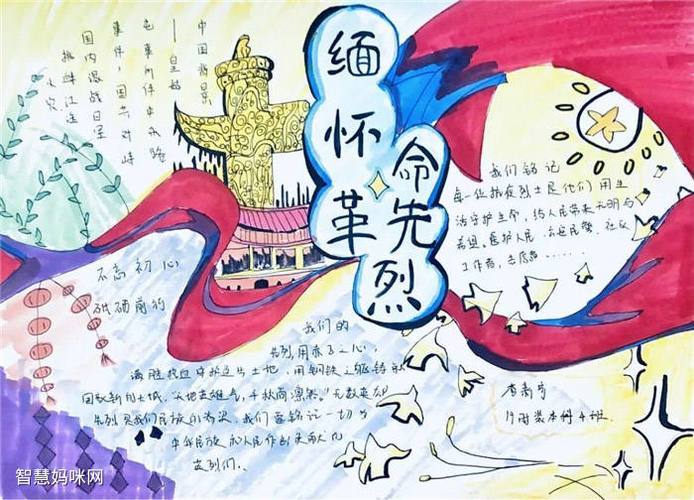 缅怀革命先烈
中国背景
——皇姑
屯事件中东路
事件，国共对峙
国内混战日军
挑衅江
火灾
我们铭记
每一位抗疫烈士 他们用生
守护生命，给人民带来光明与
希望。医护人民、公安民警、社区
工作者、志愿者......
不忘初心
砥砺前行
我们的
先烈用赤子之心，
满腔热血守护这片土地，用钢铁之躯铸就
"天地英雄气，千秋尚凛然。"无数英雄
先烈是我们民族的脊梁，我们要铭记一切为
中华民族和人民作出贡献的
英烈们。
4班
智慧妈咪网